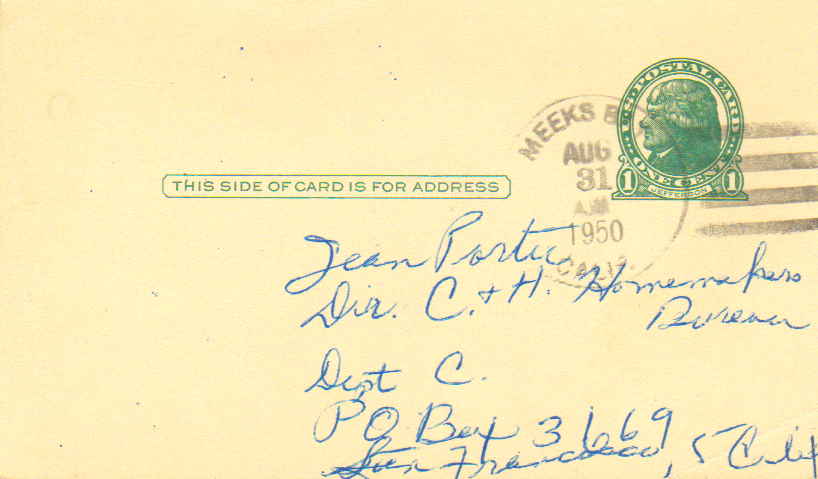 U.S. POSTAL CARD
ONE CENT
1 JEFFERSON 1
MEEKS B
AUG
31
A.M.
1950
CALIF.
THIS SIDE OF CARD IS FOR ADDRESS
Jean Porter
Dir. C. + H. Homemakers
Bureau
Dept C.
P.O Box 3169
San Francisco, 5 Calif